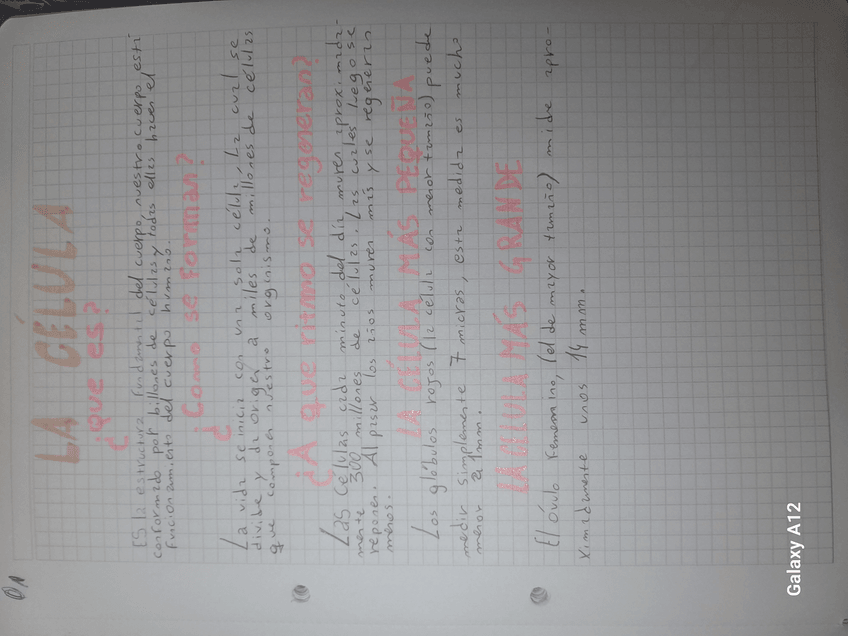 LA CÉLULA
¿Que es?
ES la estructura fundamental del cuerpo, nuestro cuerpo está
conformado por billones de células y todas ellas hacen el
funcionamiento del cuerpo humano.
¿Como se forman?
La vida se inicia con una sola célula, La cual se
divide y da origen a miles de millones de células
que componen nuestro organismo.
¿A que ritmo se regeneran?
Las Células cada minuto del día mueren aproximada-
mente 300 millones de células. Las cuales luego se
reponen. Al pasar los años mueren más y se regeneran
menos.
LA CÉLULA MÁS PEQUEÑA
Los glóbulos rojos (la célula con menor tamaño) puede
medir simplemente 7 micras, esta medida es mucho
menor a 1mm.
LA CÉLULA MÁS GRANDE
El óvulo femenino, (el de mayor tamaño) mide apro-
ximadamente unos 14 mm.
Galaxy A12